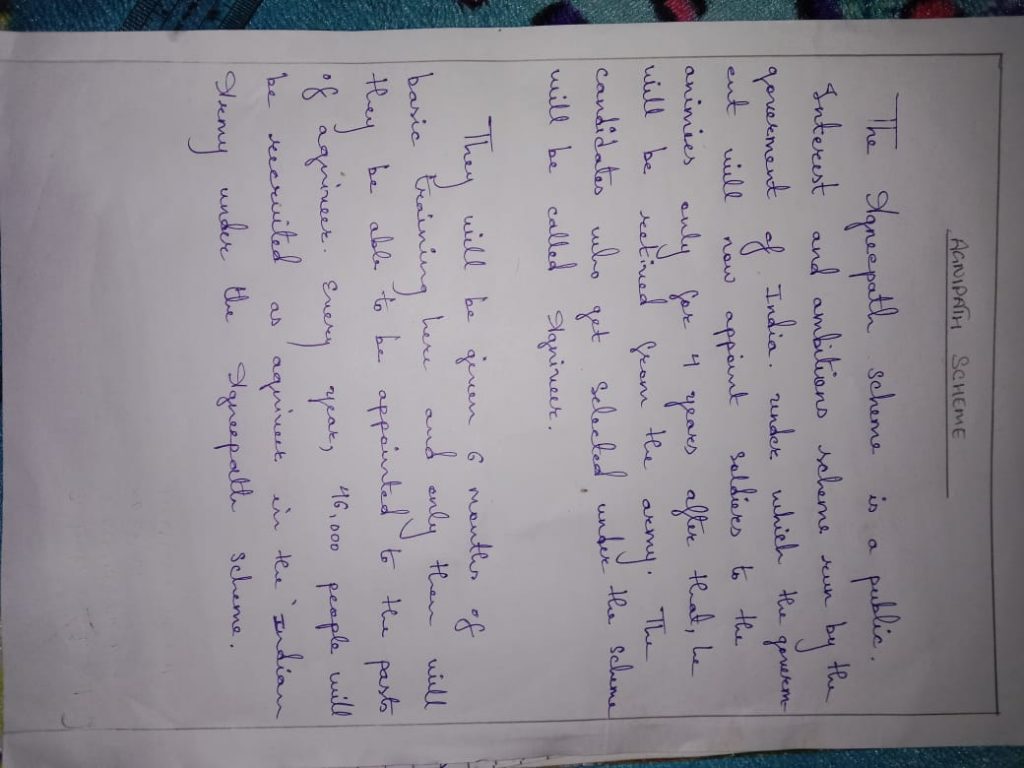 AGNIPATH SCHEME
The Agneepath scheme is a public.
Interest and ambitions scheme run by the
goverment of India. under which the goverm-
ent will now appoint soldiers to the
animies only for 4 years after that, he
will be retired from the army. The
candidates who get selected under the scheme
will be called Agnineer.
They will be given 6 months of
basic training here and only then will
they be able to be appointed to the post
of agnineer. Every year, 46,000 people will
be recruited as agnineer in the Indian
Army under the Agneepath scheme.